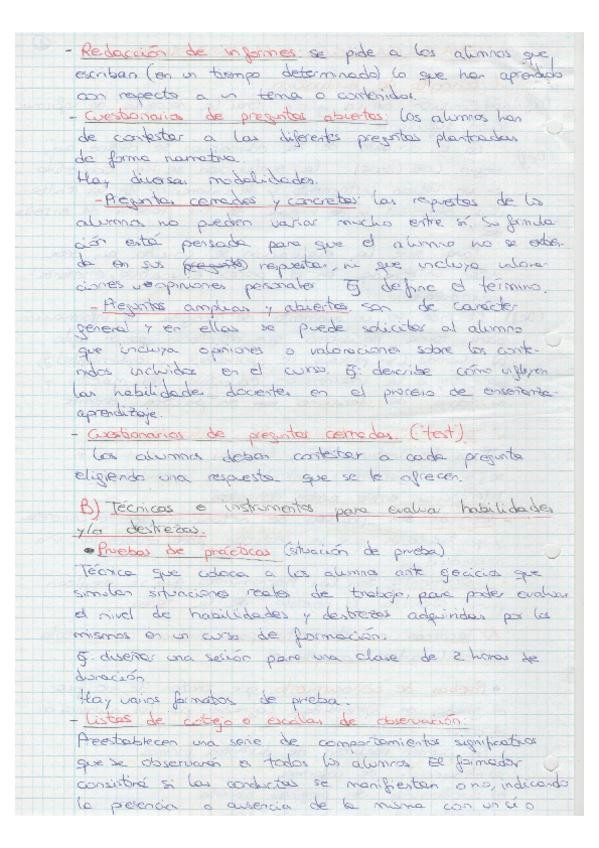 - Redacción de informes: se pide a los alumnos que
escriban (en un tiempo determinado) lo que han aprendido
con respecto a un tema o contenidos.
- Cuestionarios de preguntas abiertas: los alumnos han
de contestar a las diferentes preguntas planteadas
de forma narrativa.
Hay diversas modalidades.
- Preguntas cerradas y concretas: las repuestas de los
alumnos no pueden variar mucho entre sí. Su formula
ción está pensada para que el alumno no se extien-
da en sus respuestas, ni que incluya valora-
ciones u opiniones personales Ej define el término.
- Preguntas amplias y abiertas son de carácter
general y en ellas se puede solicitar al alumno
que incluya opiniones o valoraciones sobre los conte-
nidos incluidos en el curso. Ej. describe cómo influyen
las habilidades docentes en el proceso de enseñanza-
aprendizaje.
- Cuestionarios de preguntas cerradas. ("test")
Los alumnos deben contestar a cada pregunta
eligiendo una respuesta que se le ofrecen.
B) Técnicas e instrumentos para evaluar habilidades
y/o destrezas.
• Pruebas de prácticas (situación de prueba)
Técnica que coloca a los alumnos ante ejercicios que
simulan situaciones reales de trabajo, para poder evaluar
el nivel de habilidades y destrezas adquiridas por los
mismos en un curso de formación.
Ej. diseñar una sesión para una clase de 2 horas de
duración
Hay varios formatos de prueba.
- Listas de cotejo o escalas de observación:
Preestablecen una serie de comportamientos significativos
que se observarán a todos los alumnos El formador
consistirá si las conductas se manifiestan o no, indicando
la presencia o ausencia de la misma con un sí o